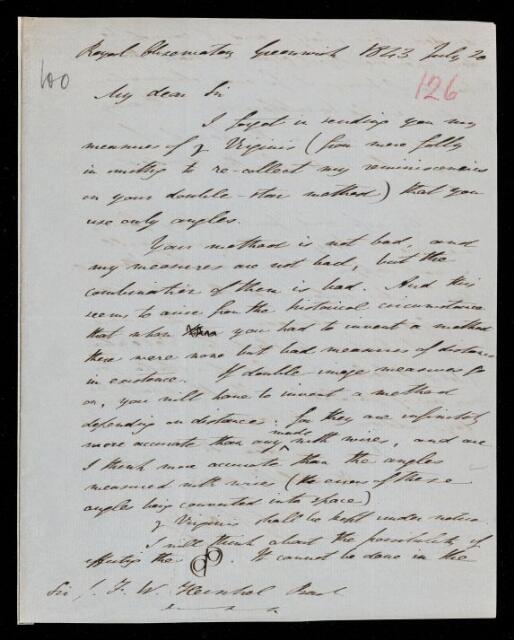 Royal Observatory Greenwich 1843 July 20
100
126
My dear Sir
I forgot in sending you my
measures of γ Virginis (from mere folly
in omitting to re-collect my reminiscences
on your double-star method) that you
use only angles.
Your method is not bad, and
my measures are not bad, but the
combination of them is bad. And this
seems to arise from the historical circumstance
that when you had to invent a method
there were none but bad measures of distance
in existence. If double-image measures go
on, you will have to invent a method
depending on distances, for they are infinitely
more accurate than any made with wires, and are
I think more accurate than the angles
measured with wires (the errors of these
angles being converted into space)
γ Virginis shall be kept under notice.
I will think about the possibility of
effecting the . It cannot be done in the
Sir J. F. W. Herschel Bart